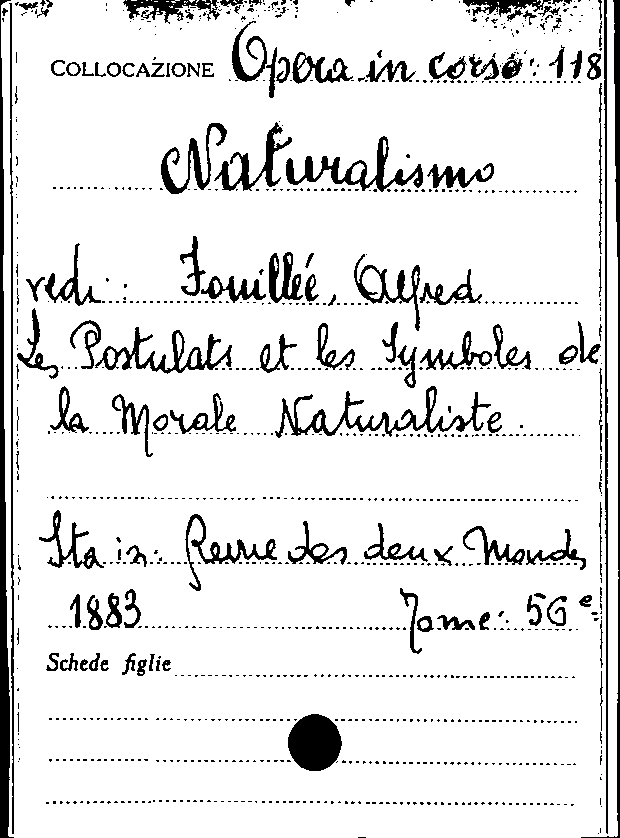 COLLOCAZIONE Opera in corso: 118
Naturalismo
vedi: Fouilléé, Alfred
Les Postulats et les Symboles de
la Morale Naturaliste.
Sta in: Revue des deux Mondes
1883 Tome: 56e
Schede figlie